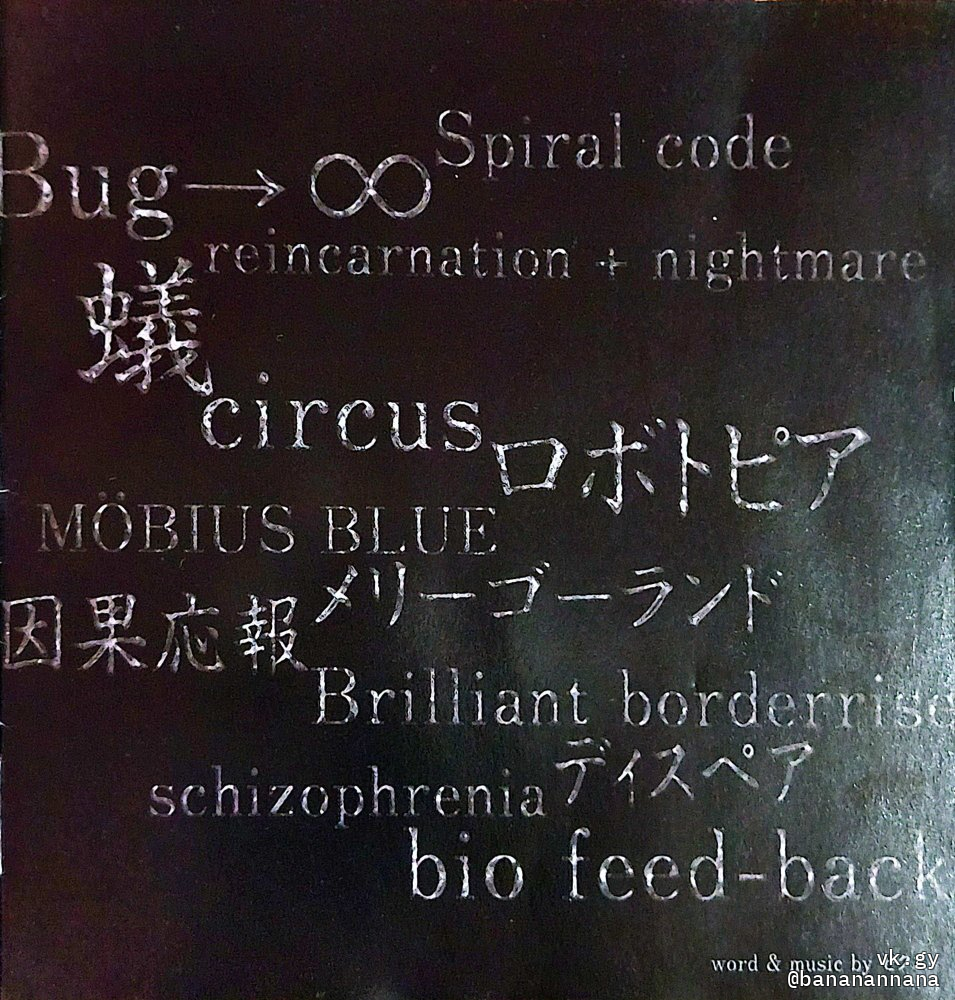 Spiral code
Bug→∞
reincarnation + nightmare
蟻
circus
ロボトピア
MÖBIUS BLUE
メリーゴーランド
因果応報
Brilliant borderrise
ディスペア
schizophrenia
bio feed-back
word & music by
vk.gy
@bananannana